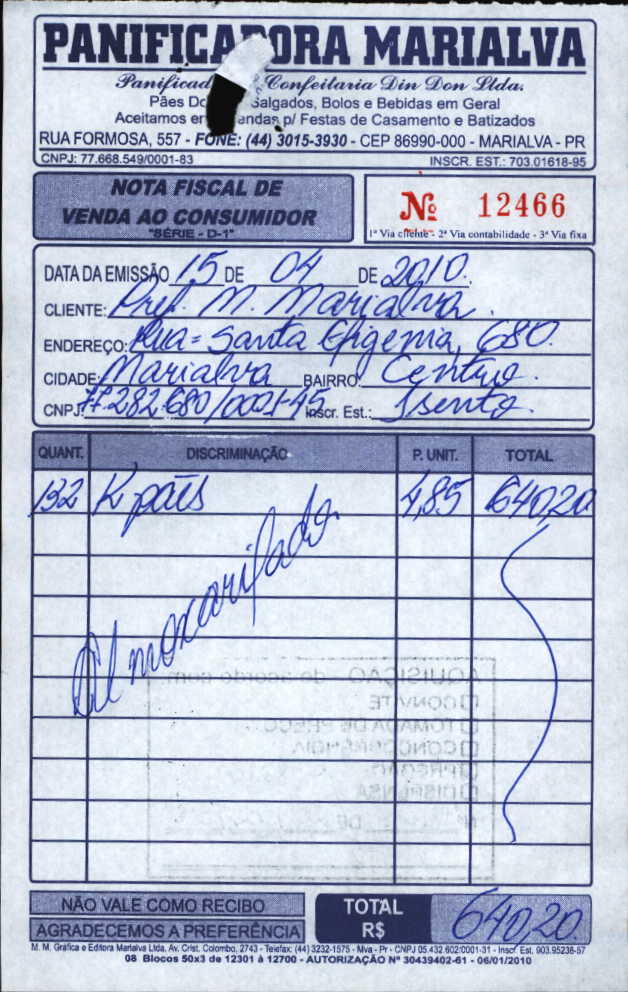 PANIFICADORA MARIALVA
Panificad Confeitaria Din Don Ltda.
Pães Do Salgados, Bolos e Bebidas em Geral
Aceitamos en endas p/ Festas de Casamento e Batizados
RUA FORMOSA, 557 - FONE: (44) 3015-3930 - CEP 86990-000 - MARIALVA - PR
CNPJ: 77.668.549/0001-83 INSCR. EST.: 703.01618-95
NOTA FISCAL DE
VENDA AO CONSUMIDOR
"SÉRIE - D-1"
Nº 12466
1ª Via cliente - 2ª Via contabilidade - 3ª Via fixa
DATA DA EMISSÃO 15 DE 04 DE 2010.
CLIENTE: Pref. M. Marialva.
ENDEREÇO: Rua = Santa Efigenia, 680.
CIDADE: Marialva BAIRRO: Centro.
CNPJ: 77.282.680/0001-45 Inscr. Est.: Isento.
QUANT. DISCRIMINAÇÃO P. UNIT. TOTAL
132 K pães 4,85 640,20
Almoxarifado
AQUISIÇÃO - de acordo com:
CONVITE
TOMADA DE PREÇO
CONCORRÊNCIA
PREGÃO
DISPENSA
Nº DE
NÃO VALE COMO RECIBO
AGRADECEMOS A PREFERÊNCIA
TOTAL R$ 640,20.
M. M. Gráfica e Editora Marialva Ltda, Av. Crist. Colombo, 2743 - Telefax: (44) 3232-1575 - Mva - Pr - CNPJ 05.432.602/0001-31 - Inscr. Est. 903.95236-57
08 Blocos 50x3 de 12301 à 12700 - AUTORIZAÇÃO Nº 30439402-61 - 06/01/2010